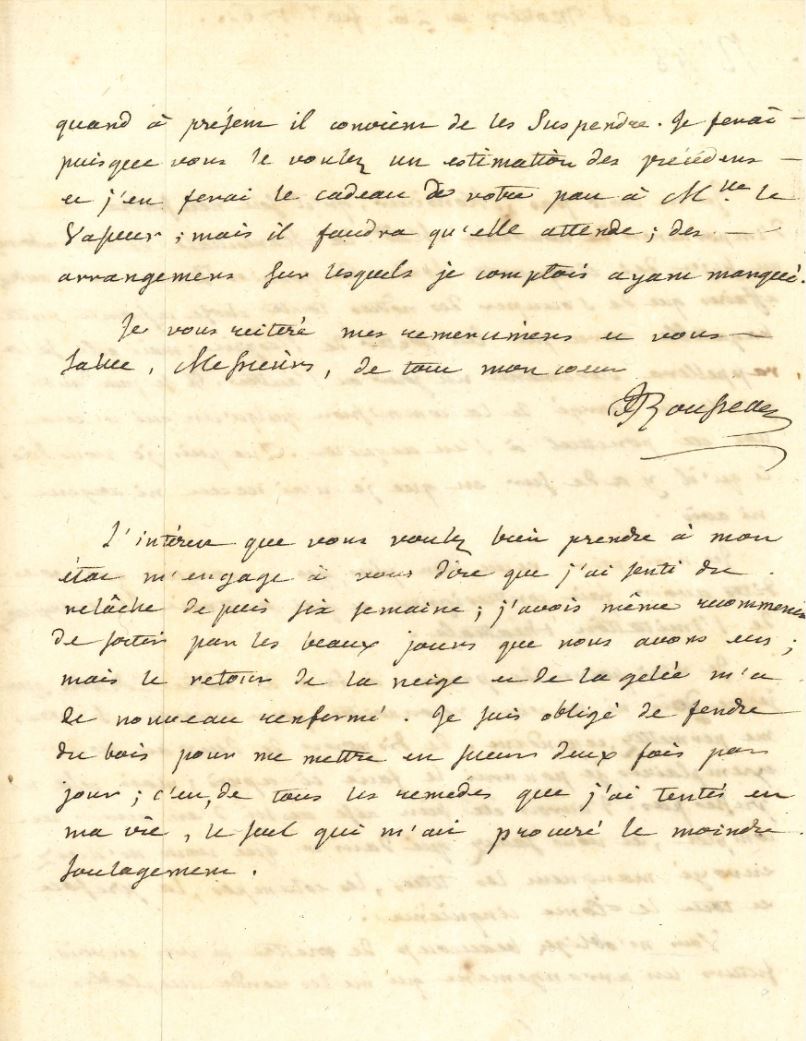 quand à présent il convient de les Suspendre. Je ferai
puisque vous le voulez un estimation des précédens
et j'en ferai le cadeau de votre part à Mlle le
Vasseur ; mais il faudra qu'elle attende ; des
arrangemens sur lesquels je comptois ayant manqué.
Je vous reitere mes remercimens et vous
salue, Messieurs, de tout mon coeur
JJRousseau
L'intérest que vous voulez bien prendre à mon
état m'engage à vous dire que j'ai senti du
relâche depuis six semaine ; j'avois même recommencé
de sortir par les beaux jours que nous avons eus ;
mais le retour de la neige et de la gelée m'a
de nouveau renfermé. Je suis obligé de fendre
du bois pour me mettre en sueur deux fois par
jour ; c'est, de tous les remèdes que j'ai tentés en
ma vie, le seul qui m'ait procuré le moindre
soulagement.